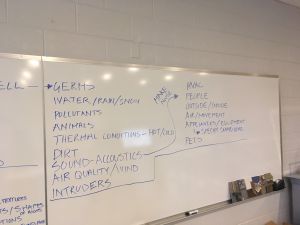 ELL -
GERMS
WATER/RAIN/SNOW
POLLUTANTS
ANIMALS
THERMAL CONDITIONS - HOT/COLD
DIRT
SOUND - ACOUSTICS
AIR QUALITY/WIND
INTRUDERS
MAKE NOISE
HVAC
PEOPLE
OUTSIDE/INSIDE
AIR/MOVEMENT
APPLIANCES/EQUIPMENT
PETS